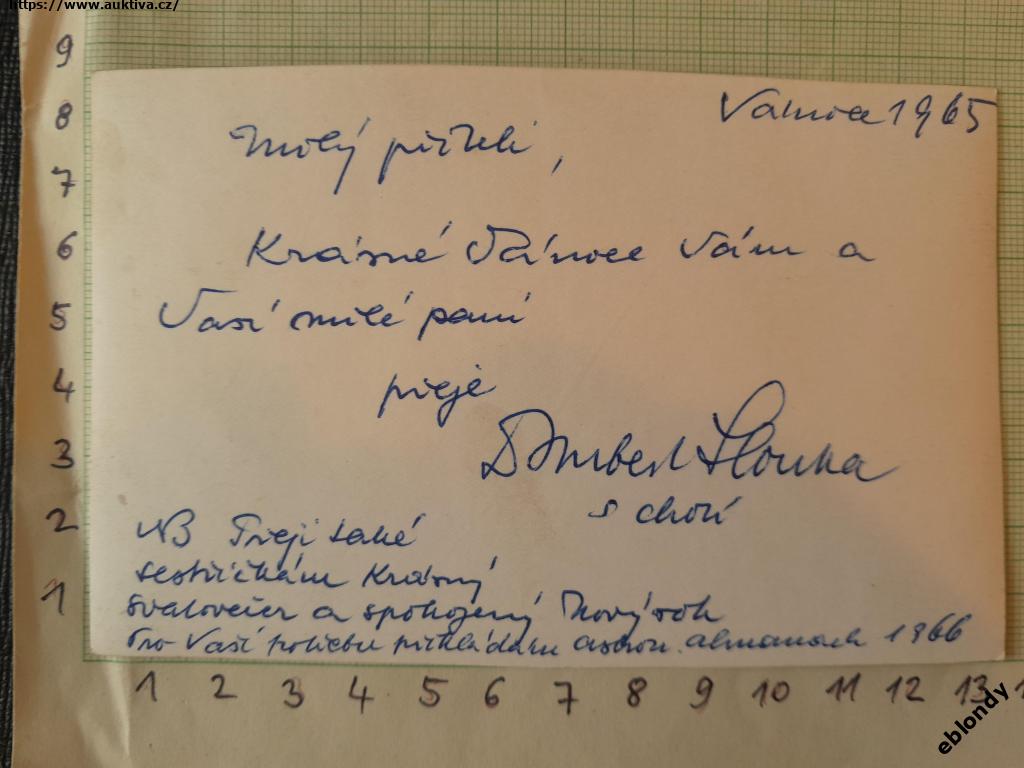 https://www.auktiva.cz/
Vánoce 1965
Milý příteli,
Krásné Vánoce Vám a
Vaší milé paní
přeje
Dr Hubert Slouka
s chotí
NB Přeji také
sestřičkám Krásný
Svatovečer a spokojený Nový rok
Pro Vaší potřebu přikládám astron. almanach 1966
9
8
7
6
5
4
3
2
1
1 2 3 4 5 6 7 8 9 10 11 12 13
eblondy